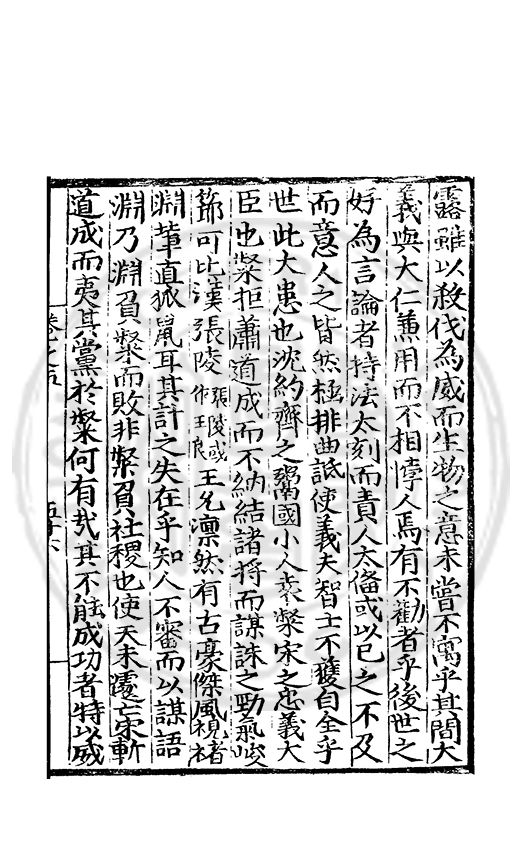 露雖以殺伐為威而生物之意未嘗不寓乎其間大
義與大仁兼用而不相悖人焉有不勸者乎後世之
好為言論者持法太刻而責人太備或以已之不及
而意人之皆然極排曲詆使義夫智士不獲自全乎
世此大患也沈約齊之鬻國小人袁粲宋之忠義大
臣也粲拒蕭道成而不納結諸將而謀誅之勁氣峻
節可比漢張陵張陵或作王良王允凛然有古豪傑風視褚
淵輩直狐鼠耳其計之失在乎知人不審而以謀語
淵乃淵負粲而敗非粲負社稷也使天未遽亡宋斬
道成而夷其黨於粲何有哉其不能成功者特以威
卷之五
五十六